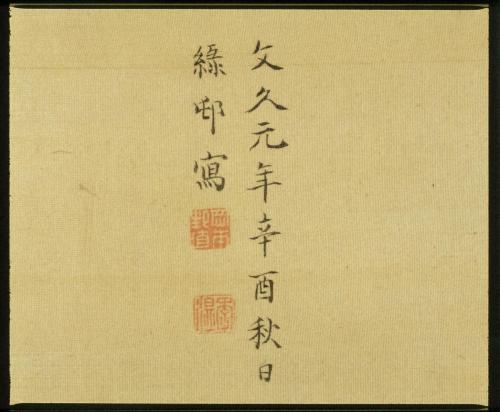 文久元年辛酉秋日
綠邨寫